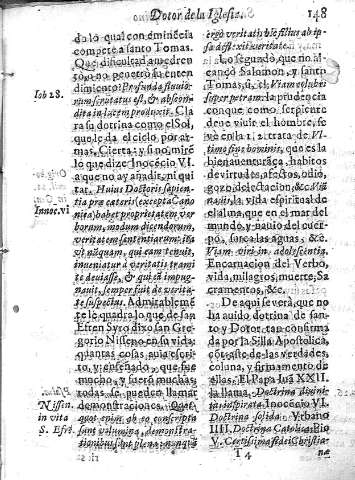 Dotor. de la Iglesia. 148
do lo qual con eminēcia
compete a santo Tomas.
Que dificultad ay de en
no penetrò su enten
dimiento? Profunda fluuiorum
scrutatus est, & abscon
dita in lucem produxit. Cla
ra su dotrina como el Sol,
que le da el cielo por ar
mas. Cierta: y si no, mirē
lo que dize Inocēcio VI.
a que no ay añadir, ni qui
tar. Huius Doctoris sapien
tia præ cæteris (excepta Cano
nica) habet proprietatem ver
borum, modum dicendorum,
veritatem sententiarum: ita
vt nūquam, qui eam tenuit,
inueniatur à veritatis trami
te deuiasse, & qui eā impug
nauit, semper fuit de verita
te suspectus. Admirablemē
te le quadra lo que de san
Efren Syro dixo san Gre
gorio Nisseno en su vida:
quantas cosas auia escri
to, y enseñado, que fue
mucho, y fuerō muchas,
todas se pueden llamar
demonstraciones. Quot
quot enim ab eo conscripta
sunt volumina, demonstra
Iob 28.
Innoc. vi
Nissen.
in vita
S. Efrē.
ergò veritatis ille filius ab ip
sa defexit veritate.
Lo segundo, que no al
cançò Salomon, y santo
Tomas, si, el Viam colubri
super petram. la prudencia
con que como serpiente
deue viuir el hombre, se
ve en la 1. 2. trata de Vl
timo fine hominis, que es la
bienauenturāça. habitos
de virtudes, afectos, odio,
gozo, delectacion, &c. Viā
nauis, la vida espiritual de
el alma, que en el mar del
mundo, y nauio del cuer
po, surca las aguas, &c.
Viam viri in adolescentia.
Encarnacion del Verbo,
vida, milagros, muerte, Sa
cramentos, &c.
De aqui se verà, que no
ha auido dotrina de san
to y Dotor, tan confirma
da por la Silla Apostolica,
como
coluna, y firmamento de
ellas. El Papa Iuā XXII.
la llama, Doctrina diuini
tus inspirata. Inocēcio VI.
Doctrina solida. Vrbano
IIII. Doctrina Catolica. Pio
V. Certissima fidei Christia-
T 4 na